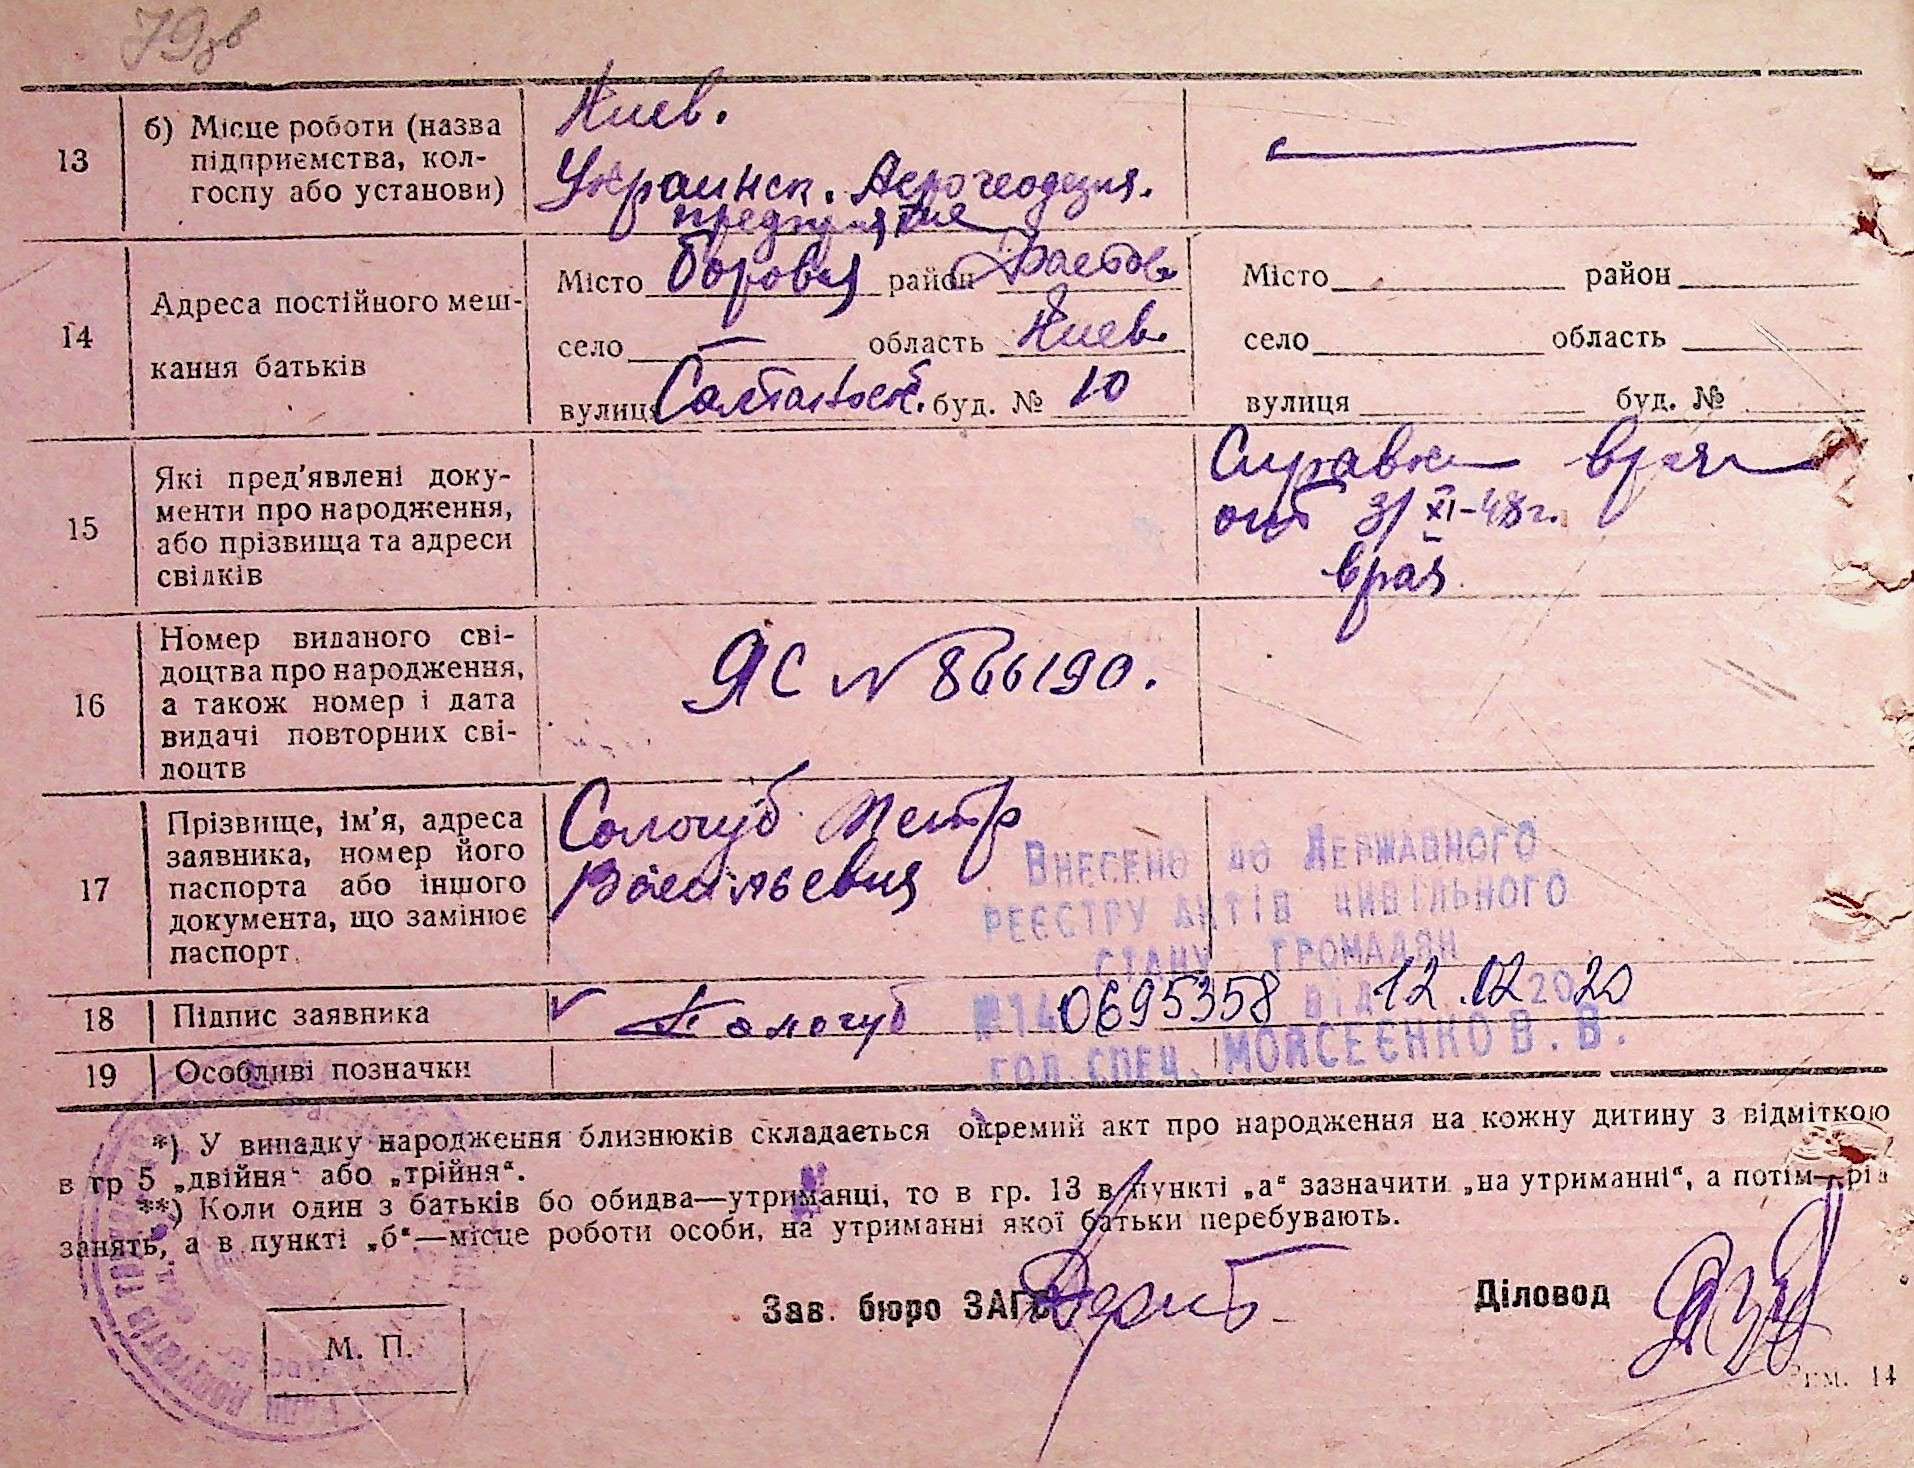 79зв
13
б) Місце роботи (назва
підприємства, кол-
госпу або установи)
Киев.
Украинск. Аерогеодезия.
предприятие
14
Адреса постійного меш-
кання батьків
Місто Боровая район Фастов.
село — область Киев.
вулиця буд. № 10
Місто район
село область
вулиця буд. №
15
Які пред'явлені доку-
менти про народження,
або прізвища та адреси
свідків
Справка врача
от 3/XI-48г.
16
Номер виданого сві-
доцтва про народження,
а також номер і дата
видачі повторних сві-
доцтв
ЯС № 866190.
17
Прізвище, ім'я, адреса
заявника, номер його
паспорта або іншого
документа, що замінює
паспорт
Сологуб Петр
Васильевич
Внесено до Державного
реєстру актів цивільного
стану громадян
№ 140695358 від 12.02 2020
гол. спец. Моисеєнко В. В.
18
Підпис заявника
Сологуб
19
Особливі позначки
*) У випадку народження близнюків складається окремий акт про народження на кожну дитину з відміткою
в гр 5 „двійня“ або „трійня“.
**) Коли один з батьків бо обидва—утриманці, то в гр. 13 в пункті „а“ зазначити „на утриманні“, а потім—рід
занять, а в пункті „б“—місце роботи особи, на утриманні якої батьки перебувають.
Зав. бюро ЗАГС
Діловод
М. П.
14